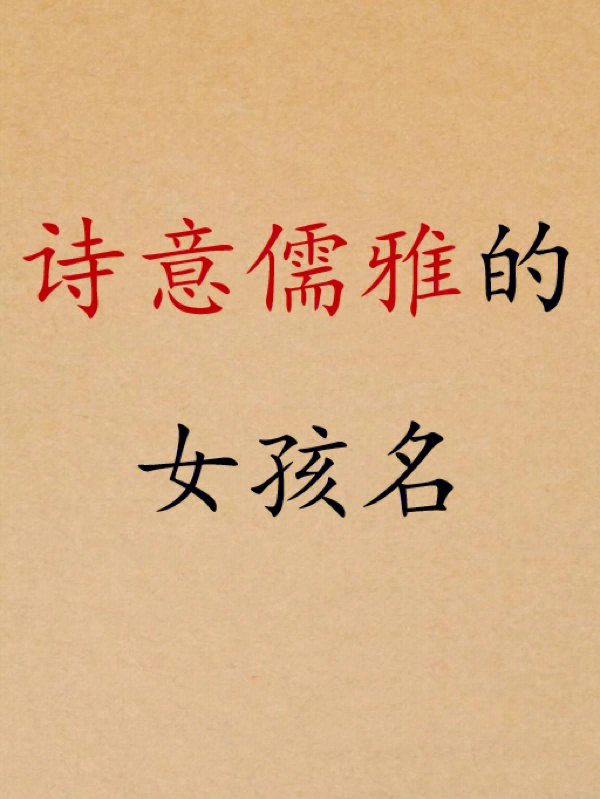 诗意儒雅的
女孩名